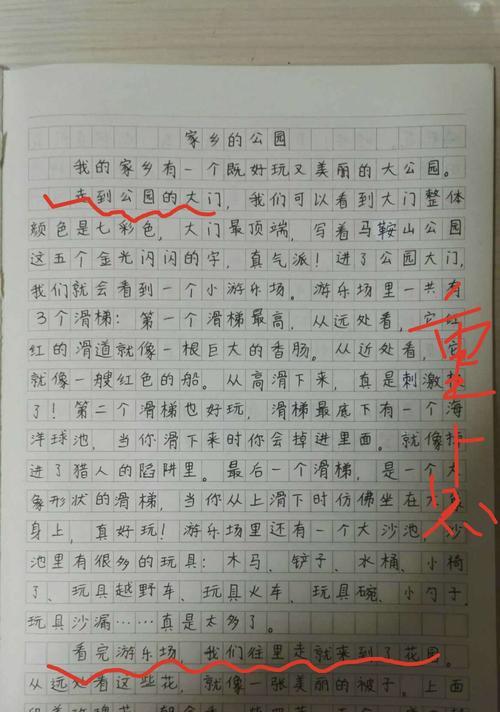 家乡的公园
我的家乡有一个既好玩又美丽的大公园。
走到公园的大门，我们可以看到大门整体
颜色是七彩色，大门最顶端，写着马鞍山公园
这五个金光闪闪的字，真气派！进了公园大门，
我们就会看到一个小游乐场。游乐场里一共有
3个滑梯：第一个滑梯最高，从远处看，它红
红的滑道就像一根巨大的香肠。从近处看，它
就像一艘红色的船。从高滑下来，真是刺激极
了！第二个滑梯也好玩，滑梯最底下有一个海
洋球池，当你滑下来时你会掉进里面。就像掉
进了猎人的陷阱里。最后一个滑梯，是一个大
象形状的滑梯，当你从上滑下时仿佛坐在大象
身上，真好玩！游乐场里还有一个大沙池，沙
池里有很多的玩具：木马、铲子、水桶、小椅
子、玩具越野车、玩具火车、玩具碗、小勺子、
玩具沙漏……真是太多了。
看完游乐场，我们往里走就来到了花园。
从远处看这些花，就像一张美丽的被子。上面
重点